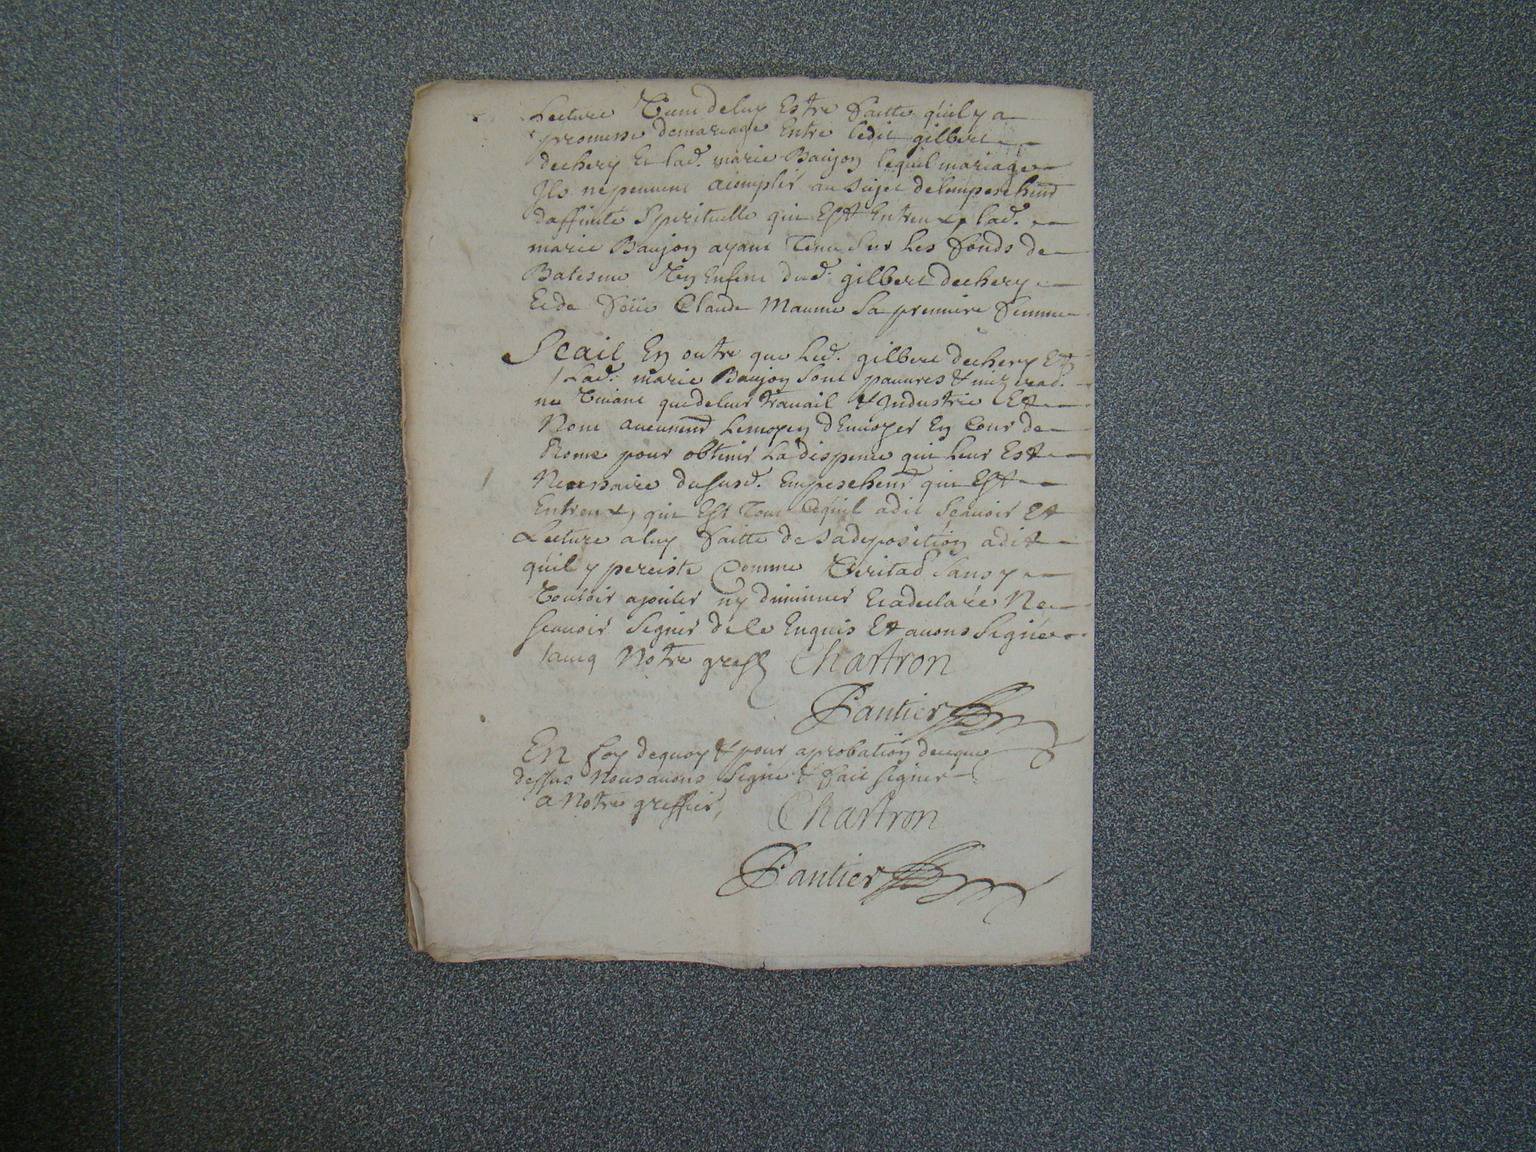 Lecture Vient deluy Estre faitte quil y a
promesse demariage Entre ledit gilbert
dechery Et lad. marie Baujon lequel mariage
Ils nepeuuent acomplir au sujet delempeschemt
daffinité Spirituelle qui Est Entreux, lad.
marie Baujon ayant Tenu sur Les fonds de
Batesme Un Enfent dud. gilbert dechery
Et de foüe Claude Maume Sa premiere femme
Scait En outre que Led. gilbert dechery Et
Lad. marie Baujon sont pauures & mizerad.
ne Viuant quedeleur trauail & Industrie Et
Nont aucunemt Lemoyen dEnuoyer En Cour de
Rome pour obtenir La dispence qui leur Est
Necessaire dususd. Empeschemt qui Est
Entreux, qui Est Tout cequil adit scauoir Et
Lecture aluy faitte de sa deposition adit
quil y perciste Comme Veritad sans y
Vouloir ajouter ny diminuer Et adeclaré Ne
scauoir signer de ce Enquis Et auons Signé
auec Notre greff. Chartron
Fautier
En foy dequoy & pour aprobation dece que
dessus Nous auons Signé & fait signer
a Notre greffier, Chartron
Fautier